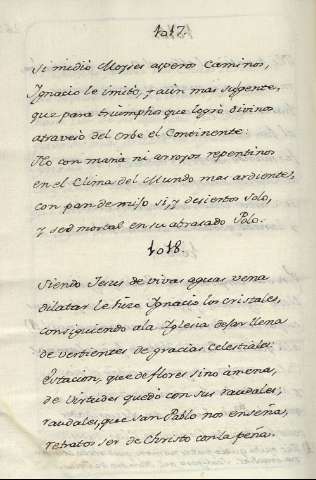 1017.
Si midió Moyses asperos Caminos,
Ignacio le imitó, y aún mas
que para triumphos que logró divinos
atravesó del Orbe el Continente:
No con maná ni arroyos repentinos
en el Clima del Mundo mas ardiente,
con pan de si, y desiertos solo,
y sed mortal en su abrasado Polo.
1018.
Siendo Jesus de vivas aguas vena
dilatar le hizo Ignacio los cristales,
consiguiendo a la Iglesia dejar llena
de vertientes de gracias celestiales:
Estacion, que de flores sino amena,
de Virtudes quedó con sus raudales,
raudales, que San Pablo nos enseña,
retratos ser de Christo con la peña.